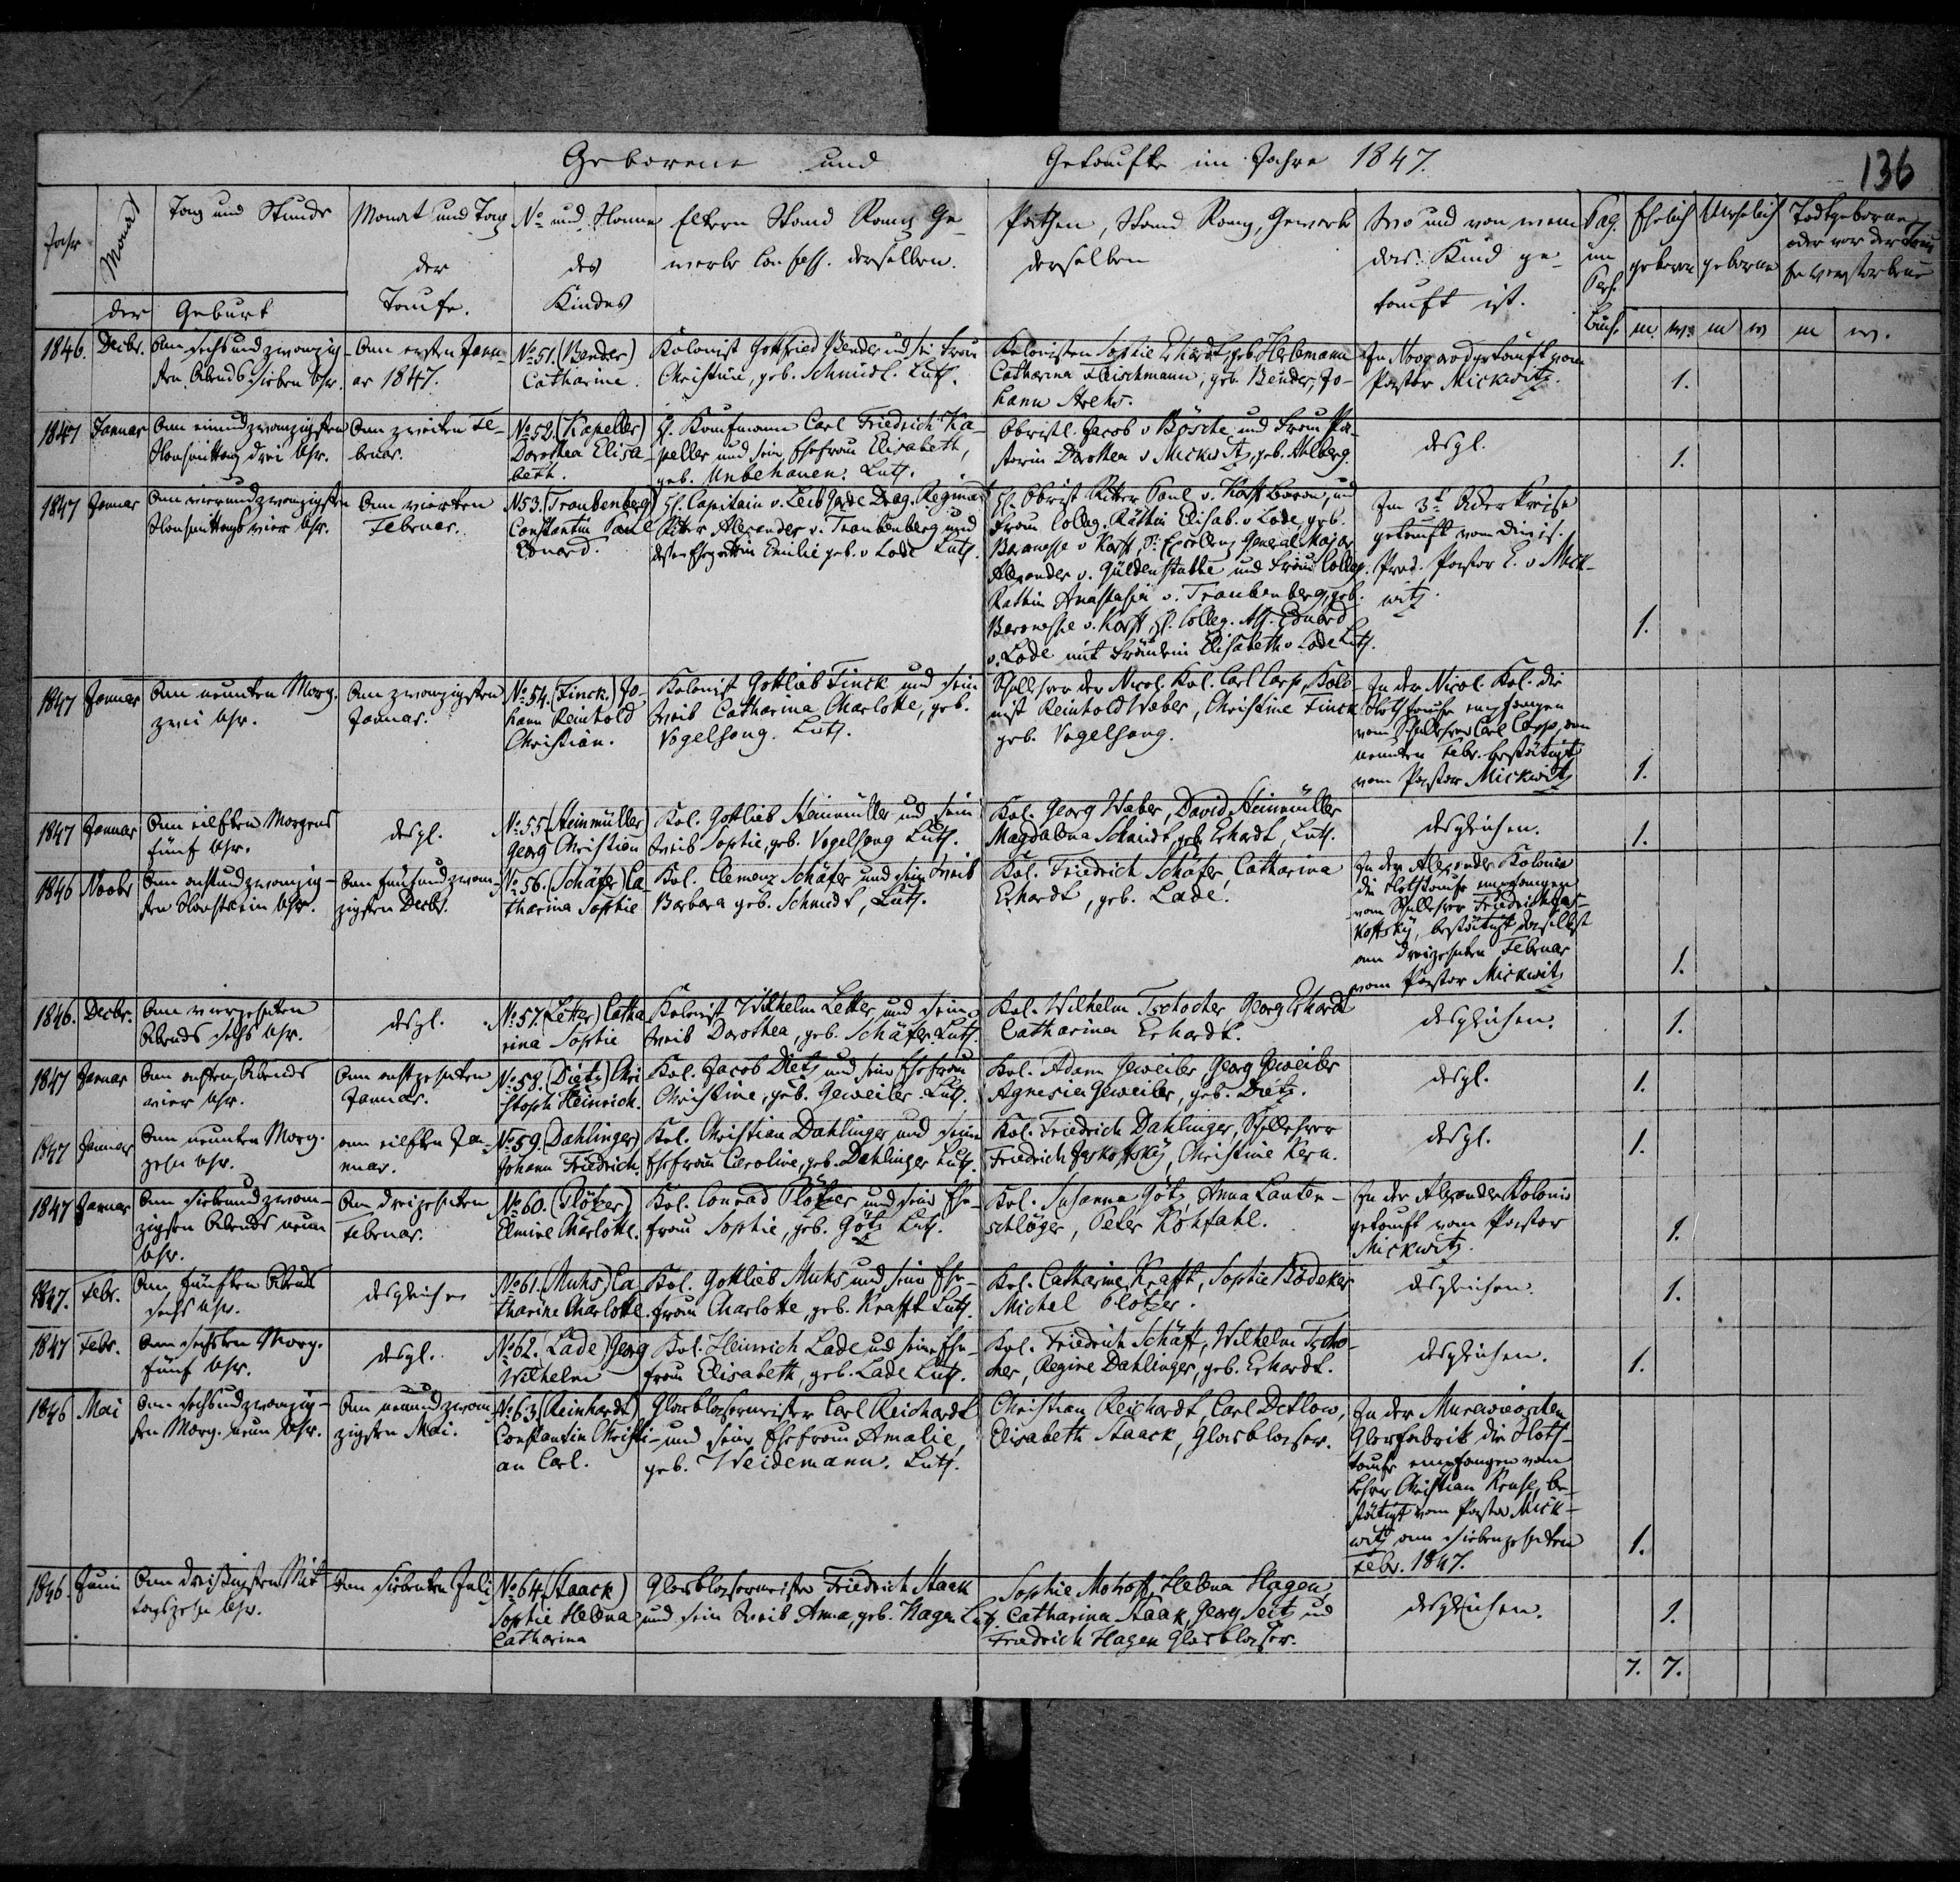 Geborene und Getaufte im Jahre 1847.
136
Jahr
Monat
Tag und Stunde
der Geburt
Monat und Tag
der
Taufe.
No und Name
des
Kindes
Eltern Stand Rang Ge-
werbe Confess. derselben.
Pathen, Stand Rang, Gewerbe
derselben
Wo und von wem
das Kind ge-
tauft ist.
Pag.
im
Pers.
Buch.
Ehelich
geboren
Unehelich
geborne
Todtgeborne
oder vor der Tau
fe verstorbene
m. w. m w m w.
1846. Decbr.
Am sechsundzwanzig-
sten Abends sieben Uhr.
Am ersten Janu-
ar 1847.
No 51. (Bender)
Catharina.
Kolonist Gottfried Bender und sei Frau
Christine, geb. Schmidt. Luth.
Kolonisten Sophie Erhardt, geb.
Catharina Fleischmann, geb. Bender, Jo-
hann
In Nowgorod getauft vom
Pastor Mickwitz.
1.
1847 Januar
Am einundzwanzigsten
Nachmittag drei Uhr.
Am zweiten Fe-
bruar.
No 52. (Kapeller)
Dorothea Elisa-
beth.
H. Kaufmann Carl Friedrich Ka-
peller und sein Ehefrau Elisabeth,
geb. Unbehauen. Luth.
Obristl. Jacob v Bösche und Frau Pa-
storin Dorothea v Mickwitz, geb. Ahlberg.
desgl.
1.
1847 Januar
Am vierundzwanzigsten
Nachmittags vier Uhr.
Am vierten
Februar.
N 53. (Traubenberg)
Constantin Paul
Eduard.
H. Capitain v. Leib Garde Drag. Regim.
Ritter Alexander v. Traubenberg und
dessen Ehegattin Emilie geb. v Lode Luth.
H. Obrist Ritter Paul v. Korff Baron, und
Frau Colleg. Räthin Elisab. v Lode, geb.
Baronesse v Korff, Sr Excellenz General Major
Alexander v. Güldenstubbe und Frau Colleg.
Räthin Anastasia v. Traubenberg, geb.
Baronesse v. Korff, H. Colleg. Ass. Eduard
v. Lode mit Fräulein Elisabeth v Lode Luth.
Im 3t Ackerkreise
getauft vom Divis.
Pred. Pastor E. v Mick-
witz.
1.
1847 Januar
Am neunten Morg.
zwei Uhr.
Am zwanzigsten
Januar.
No 54. (Finck.) Jo-
hann Reinhold
Christian.
Kolonist Gottlieb Finck und sein
Weib Catharina Charlotte, geb.
Vogelsang. Luth.
Schullehrer der Nicol. Kol. Carl Carp, Kolo-
nist Reinhold Weber, Christine Finck
geb. Vogelsang.
In der Nicol. Kol. die
Nothtaufe empfangen
vom Schullehrer Carl Carp, am
neunten Febr. bestätigt
vom Pastor Mickwitz
1.
1847 Januar
Am eilften Morgens
fünf Uhr.
desgl.
No 55. (Steinmüller)
Georg Christian
Kol. Gottlieb Steinmüller und sein
Weib Sophie, geb. Vogelsang Luth.
Kol. Georg Weber, David Steinmüller
Magdalena Schmidt, geb. Erhardt, Luth.
desgleichen.
1.
1846 Novbr
Am achtundzwanzig-
sten Nachts ein Uhr.
Am fünfundzwan-
zigsten Decbr.
No 56. (Schäfer) Ca-
tharina Sophie
Kol. Clemenz Schäfer und sein Weib
Barbara geb. Schmidt, Luth.
Kol. Friedrich Schäfer, Catharina
Erhardt, geb. Lade.
In der Alexander Kolonie
die Nothtaufe empfangen
vom Schullehrer Friedrich Jas-
koffsky, bestätigt daselbst
am dreizehnten Februar
vom Pastor Mickwitz
1.
1846. Decbr.
Am vierzehnten
Abends sechs Uhr.
desgl.
No 57. (Letter) Catha
rina Sophie
Kolonist Wilhelm Letter, und sein
Weib Dorothea, geb. Schäfer. Luth.
Kol. Wilhelm Tschocher Georg Erhardt
Catharina Erhardt.
desgleichen.
1.
1847 Januar
Am achten, Abends
vier Uhr.
Am achtzehnten
Januar.
No 58. (Dietz) Chri
stoph Heinrich.
Kol. Jacob Dietz und sein Ehefrau
Christine, geb. Geweiler. Luth.
Kol. Adam Geweiler, Georg Geweiler
Agnesia Geweiler, geb. Dietz.
desgl.
1.
1847 Januar
Am neunten Morg.
zehn Uhr.
am eilften Ja-
nuar.
No 59. (Dahlinger)
Johann Friedrich.
Kol. Christian Dahlinger und seine
Ehefrau Caroline, geb. Dahlinger Luth.
Kol. Friedrich Dahlinger, Schullehrer
Friedrich Jaskoffsky, Christine Kern.
desgl.
1.
1847 Januar
Am siebenundzwan-
zigsten Abends neun
Uhr.
Am dreizehnten
Februar.
No 60. (Plötzer)
Elmine Charlotte.
Kol. Conrad Plötzer und sein Ehe-
frau Sophie, geb. Götz Luth.
Kol. Susanna Götz, Anna Lauten-
schläger, Peter Kohfahl.
In der Alexander Kolonie
getauft vom Pastor
Mickwitz.
1.
1847. Febr.
Am fünften Abends
sechs Uhr.
desgleichen
No 61. (Muhs) Ca
tharine Charlotte.
Kol. Gottlieb Muhs und sein Ehe-
frau Charlotte, geb. Krafft Luth.
Kol. Catharine Krafft, Sophie Bödeker
Michel Plötzer.
desgleichen.
1.
1847 Febr.
Am sechsten Morg.
fünf Uhr.
desgl.
No 62. Lade) Georg
Wilhelm
Kol. Heinrich Lade und seine Ehe-
frau Elisabeth, geb. Lade Luth.
Kol. Friedrich Schäff, Wilhelm Tscho-
cher, Regine Dahlinger, geb. Erhardt.
desgleichen.
1.
1846 Mai
Am sechsundzwanzig-
sten Morg. neun Uhr.
Am neunundzwan-
zigsten Mai.
No 63. (Reinhardt)
Constantin Christi-
an Carl.
Glasblasermeister Carl Reichardt
und seine Ehefrau Amalie,
geb. Weidemann. Luth.
Christian Reichardt, Carl Detlow,
Elisabeth Staack, Glasblaser.
In der Murawiewschen
Glasfabrik die Noth-
taufe empfangen vom
Lehrer Christian Kruse, be-
stätigt vom Pastor Mick-
witz am siebenzehnten
Febr. 1847.
1.
1846. Juni
Am dreißigsten Mit-
tags zehn Uhr.
Am siebenten Juli
No 64. (Staack)
Sophie Helena
Catharina
Glasblasermeister Friedrich Staak
und sein Weib Anna, geb. Hagen Luth.
Sophie Mohoff, Helena Hagen,
Catharina Staak, Georg Seitz und
Friedrich Hagen Glasblaser.
desgleichen.
1.
7. 7.